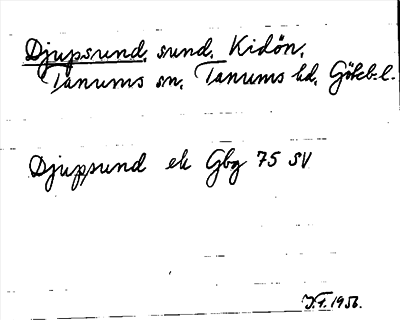 Djupsund, sund, Kidön,
Tanums sn, Tanums hd, Göteb. l.
Djupsund ek Gbg 75 SV
J.F. 1956.